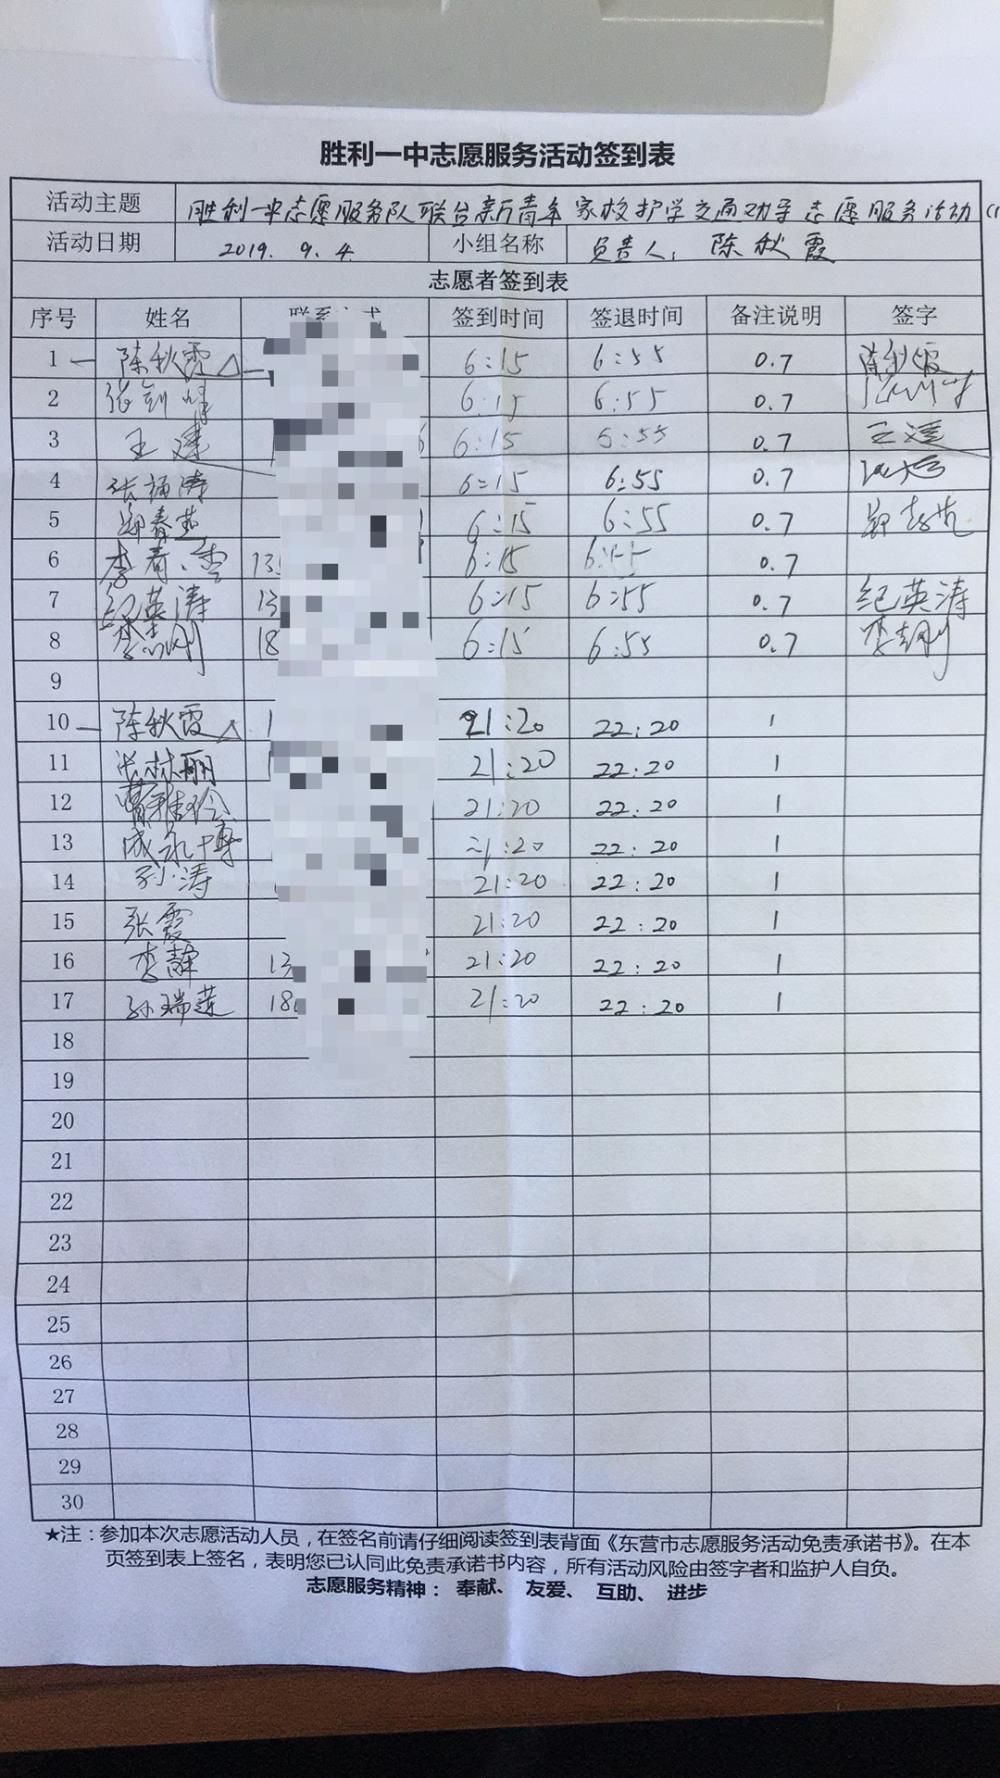 胜利一中志愿服务活动签到表
活动主题 胜利一中志愿服务队联合新青年家校护学交通劝导志愿服务活动
活动日期 2019. 9. 4 小组名称 负责人: 陈秋霞
志愿者签到表
序号 姓名 签到时间 签退时间 备注说明 签字
1 陈秋霞 △ 6:15 6:55 0.7 陈秋霞
2 张剑峰 6:15 6:55 0.7
3 王建 6:15 6:55 0.7
4 张 涛 6:15 6:55 0.7
5 郑春 6:15 6:55 0.7
6 李春 13 6:15 6:55 0.7
7 纪英涛 13 6:15 6:55 0.7 纪英涛
8 李 刚 18 6:15 6:55 0.7 李 刚
9
10 陈秋霞 △ 1 21:20 22:20 1
11 丽 21:20 22:20 1
12 曹雅玲 21:20 22:20 1
13 成永博 21:20 22:20 1
14 孙涛 21:20 22:20 1
15 张霞 21:20 22:20 1
16 李静 13 21:20 22:20 1
17 孙瑞莲 18 21:20 22:20 1
18
19
20
21
22
23
24
25
26
27
28
29
30
★注：参加本次志愿活动人员，在签名前请仔细阅读签到表背面《东营市志愿服务活动免责承诺书》。在本
页签到表上签名，表明您已认同此免责承诺书内容，所有活动风险由签字者和监护人自负。
志愿服务精神： 奉献、 友爱、 互助、 进步